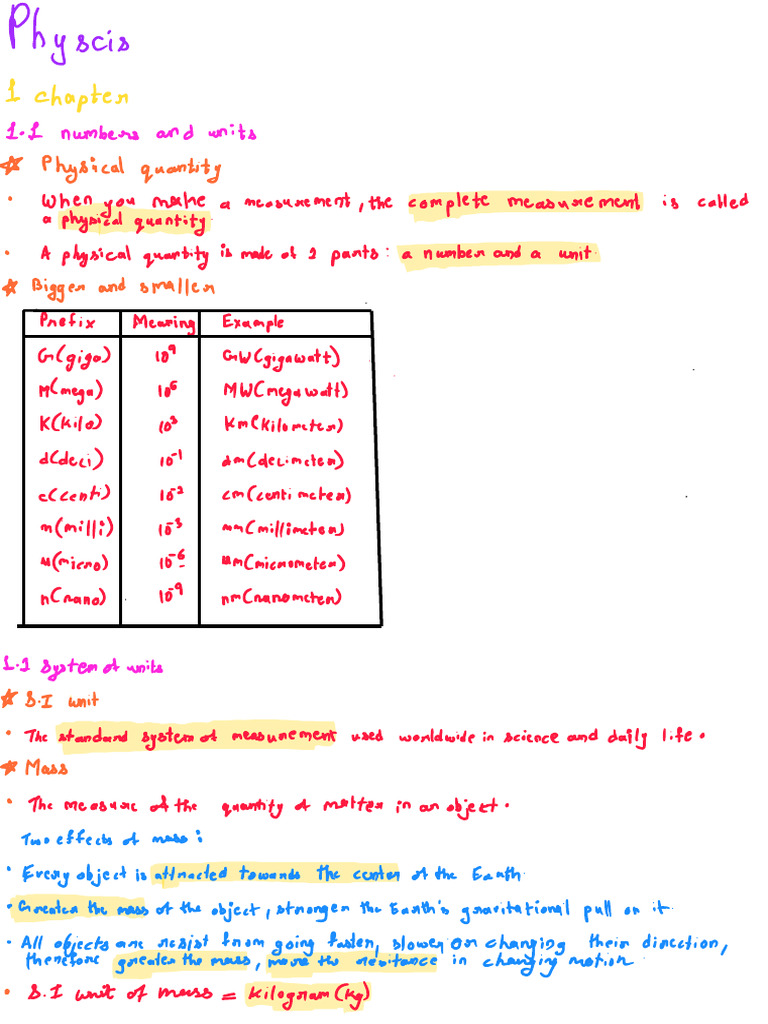 Physcis
1 chapter
1.1 numbers and units
Physical quantity
• When you make a measurement, the complete measurement is called
a physical quantity.
• A physical quantity is made of 2 parts: a number and a unit.
Bigger and smaller
Prefix Meaning Example
G(giga) 10⁹ GW(gigawatt)
M(mega) 10⁶ MW(megawatt)
K(kilo) 10³ Km(kilometer)
d(deci) 10⁻¹ dm(decimeter)
c(centi) 10⁻² cm(centimeter)
m(milli) 10⁻³ mm(millimeter)
u(micro) 10⁻⁶ um(micrometer)
n(nano) 10⁻⁹ nm(nanometer)
1.2 System of units
S.I unit
• The standard system of measurement used worldwide in science and daily life.
Mass
• The measure of the quantity of matter in an object.
Two effects of mass:
• Every object is attracted towards the center of the Earth.
• Greater the mass of the object, stronger the Earth's gravitational pull on it.
• All objects are resist from going faster, slower or changing their direction,
therefore greater the mass, more the resistance in changing motion.
• S.I unit of mass = kilogram(kg)